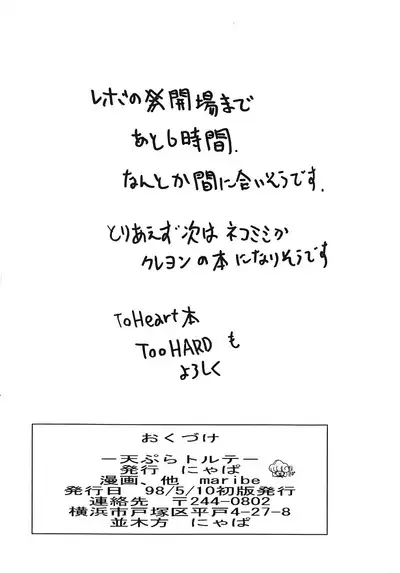 レボの祭開場まで
あと6時間.
なんとか間に合いそうです.
とりあえず次は ネコミミか
クレヨンの本になりそうです
ToHeart本
TooHARD も
よろしく
おくづけ
―天ぷらトルテ―
発行 にゃぱ
漫画、他 maribe
発行日 98/5/10初版発行
連絡先 〒244-0802
横浜市戸塚区平戸4-27-8
並木方 にゃぱ